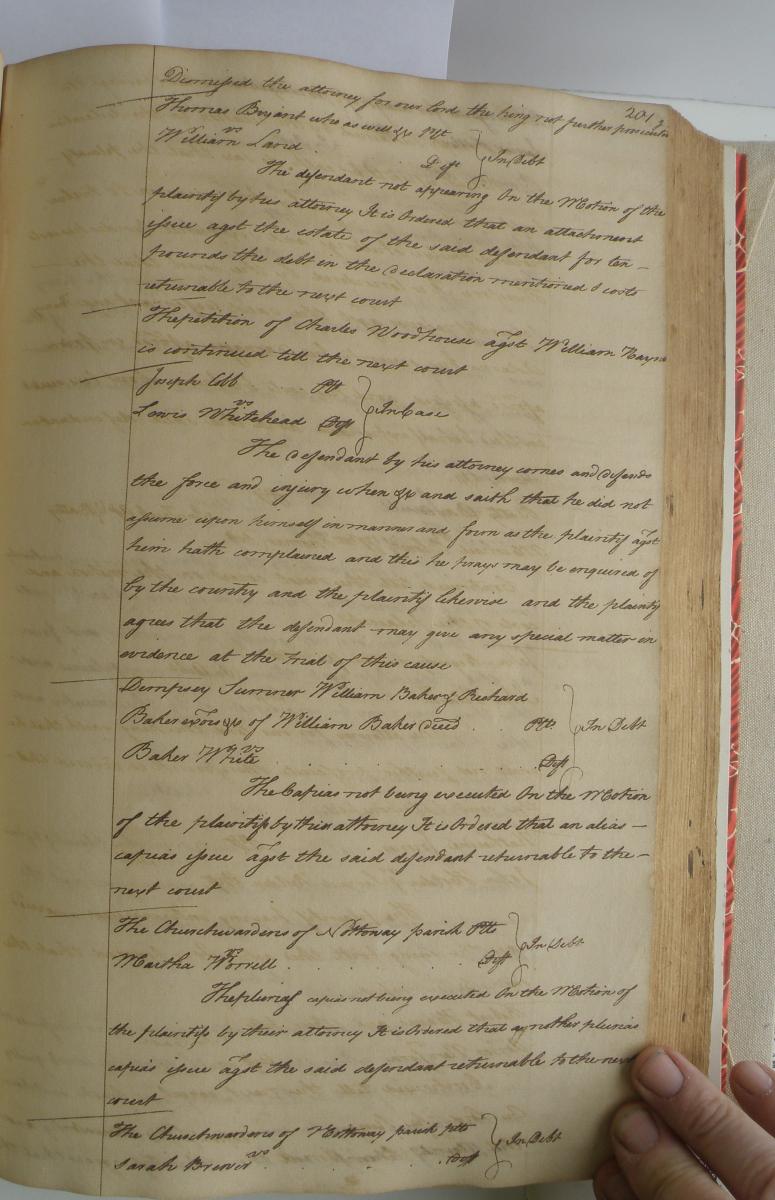 201
Dismissed the attorney for our lord the king not further prosecuting
Thomas Bryant who as well &c Plt
vs } In Debt
William Land . Deft
The defendant not appearing On the Motion of the
plaintif by his attorney It is Ordered that an attachment
issue agst the estate of the said defendant for ten
pounds the debt in the declaration mentioned & costs
returnable to the next court
The petition of Charles Woodhouse agst William
is continued till the next court
Joseph Cobb . . Plt
vs } In Case
Lewis Whitehead Deft
The defendant by his attorney comes and defends
the force and injury when &c and saith that he did not
assume upon himself in manner and form as the plaintif agst
him hath complained and this he prays may be enquired of
by the country and the plaintif likewise and the plaintif
agrees that the defendant may give any special matter in
evidence at the trial of this cause
Dempsey Sumner William Baker & Richard
Baker exors &c of William Baker decd . Plts } In Debt
vs
Baker White . . . . Deft
The Capias not being executed On the Motion
of the plaintifs by their attorney It is Ordered that an alias —
capias issue agst the said defendant returnable to the —
next court
The Churchwardens of Nottoway parish Plts
vs } In Debt
Martha Worrell . . . Deft
The plurias capias not being executed On the Motion of
the plaintifs by their attorney It is Ordered that another plurias
capias issue agst the said defendant returnable to the next
court
The Churchwardens of Nottoway parish plts
vs } In Debt
Sarah Brewer . . . Deft